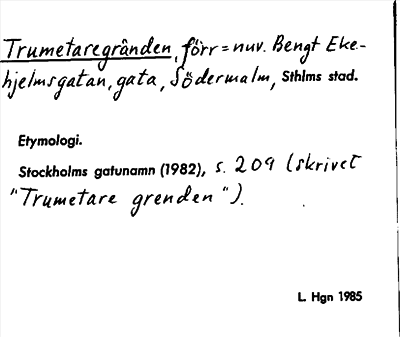 Trumetaregränden, förr = nuv. Bengt Eke-
hjelmsgatan, gata, Södermalm, Sthlms stad.
Etymologi.
Stockholms gatunamn (1982), s. 209 (skrivet
"Trumetare grenden").
L. Hgn 1985